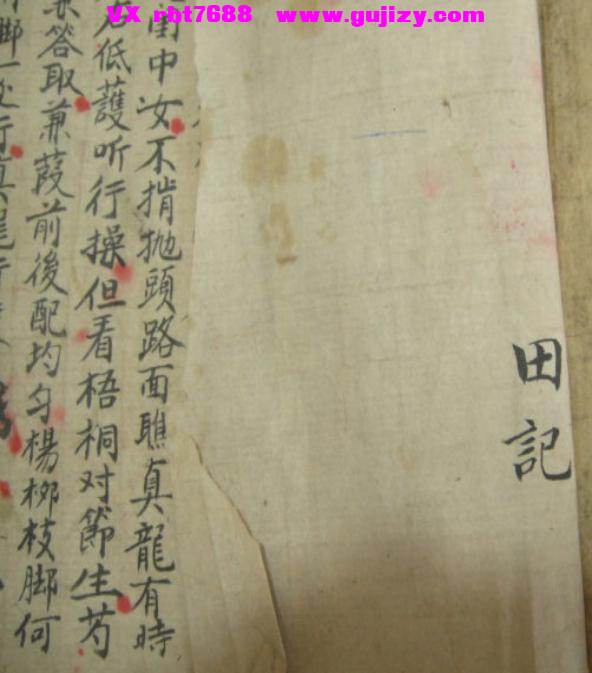 VX rbt7688 www.gujizy.com
田記
閨中女不揹拋頭路面瞧真龍有時
低護听行操但看梧桐对節生芍
答取蒹葭前後配均匀楊柳枝脚何
脚一 行真龍行